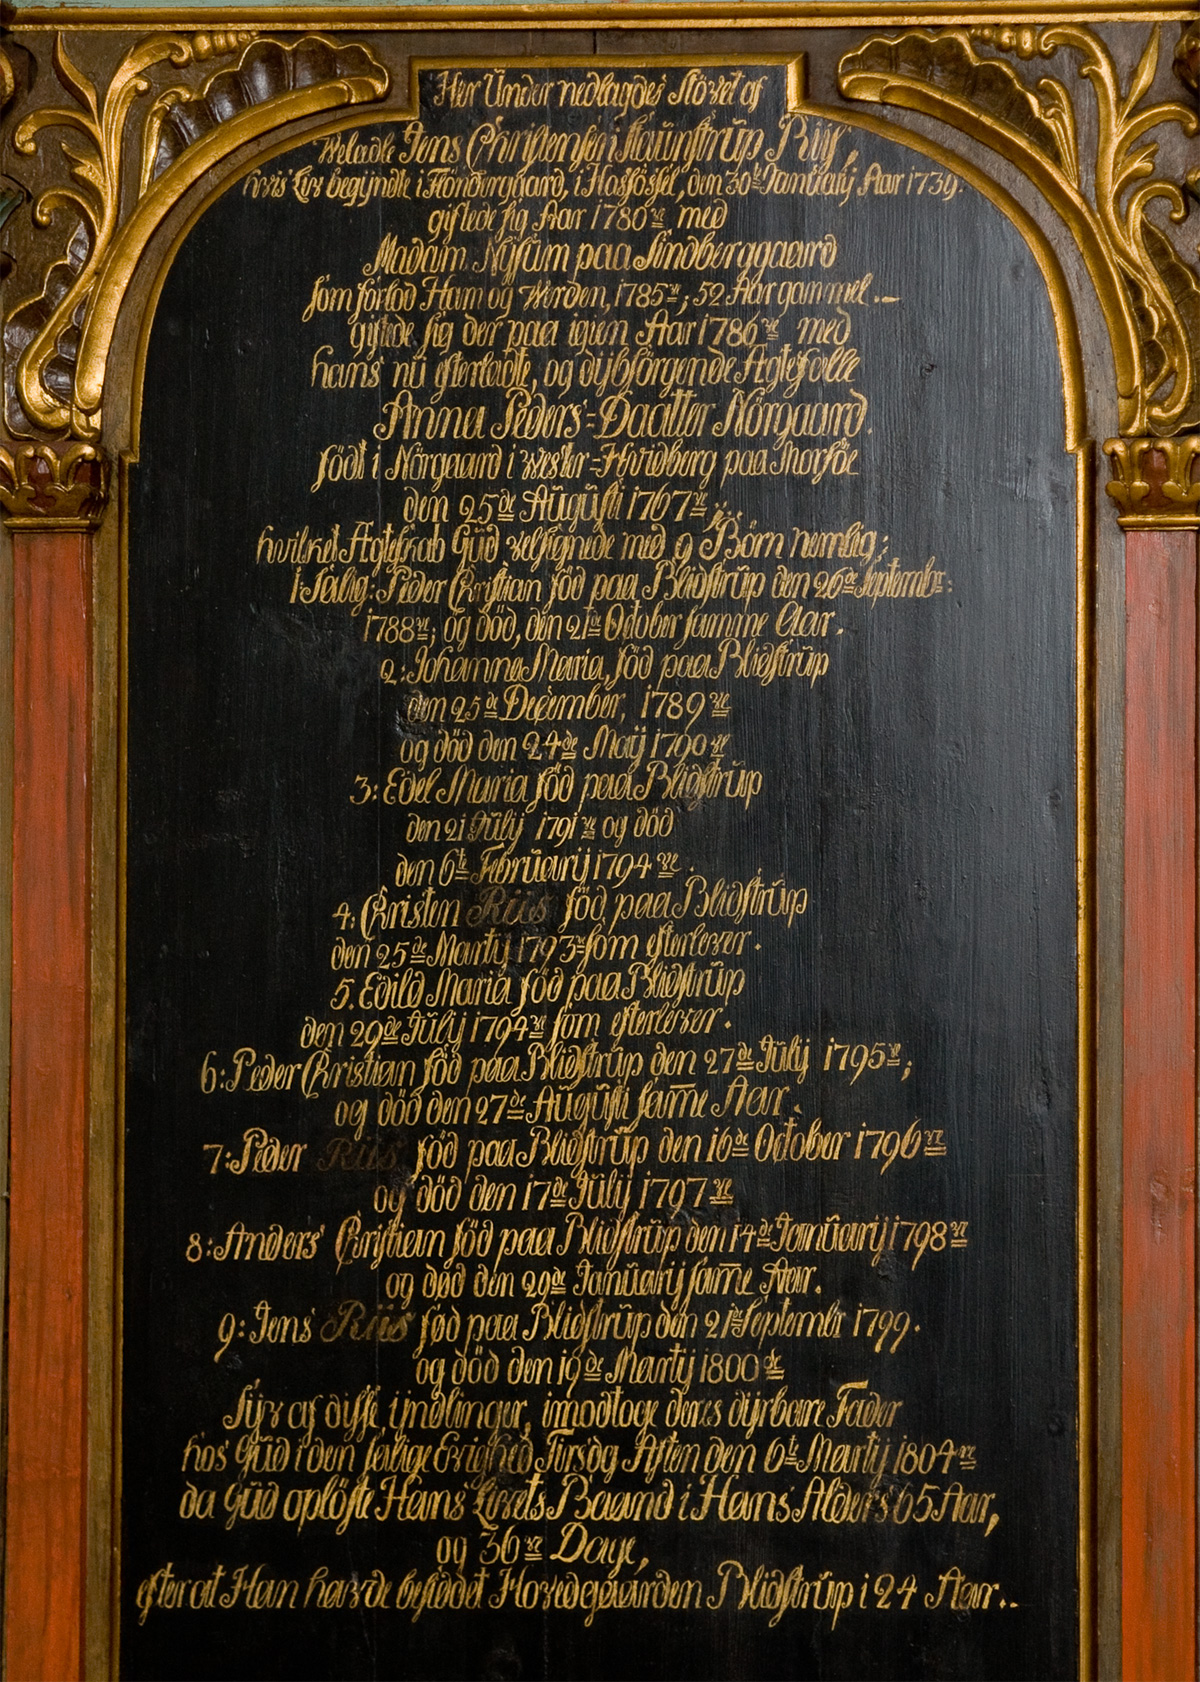 Her Ünder nedlagdes Stövet af
Welædle Jens Christensen Staünstrüp Riis,
hvis Liv begÿndte i Flöndergaard, i Hassösset, den 30te Januarÿ Aar 1739.
giftede sig Aar 1780ve med
Madam Nÿsüm paa Sindberggaard
som forlod Ham og Verden, 1785ve; 52 Aar gammel.
giftede sig der paa igien Aar 1786ve med
hans nü efterladte, og dÿbsörgende Ægtefælle
Anna Peders-Daatter Nörgaard.
födt i Nörgaard i Wester-Hvidberg paa Morsöe
den 25de Aügüsti 1767ve
hvilket Ægteskab Güd velsignede med 9 Börn nemlig;
1: Sælig: Peder Christian föd paa Blidstrüp den 26de Septembr:
1788ve; og död, den 21de October samme Aar.
2: Johanna Maria, föd paa Blidstrüp
den 25de December, 1789ve
og död den 24de Maÿ 1790ve
3: Edel Maria föd paa Blidstrüp
den 21 Jülÿ 1791ve og död
den 6te Februarÿ 1794ve.
4: Christen Riis föd paa Blidstrüp
den 25de Martÿ 1793ve som efterlever.
5. Edild Maria föd paa Blidstrüp
den 29de Jülÿ 1794ve som efterlever.
6: Peder Christian föd paa Blidstrüp den 27de Jülÿ 1795ve;
og död den 27de Aügüsti sam̅e Aar.
7: Peder Riis föd paa Blidstrüp den 16de October 1796ve
og död den 17de Jülÿ 1797ve
8: Anders Christian föd paa Blidstrüp den 14de Janüarÿ 1798ve
og død den 29de Janüarÿ sam̅e Aar.
9: Jens Riis fød paa Blidstrüp den 21de Septembr 1799.
og död den 19de Martÿ 1800de
Sÿv af disse ÿndlinger, imodtoge deres dÿrbare Fader
hos Güd i den salige Evighed Tirsdg Aften den 6te Martÿ 1804ve
da Güd oplöste Hans Livets Baand i Hans Alders 65 Aar,
og 36ve Dage,
efter at Han havde besiddet Hovedgaarden Blidstrüp i 24 Aar..